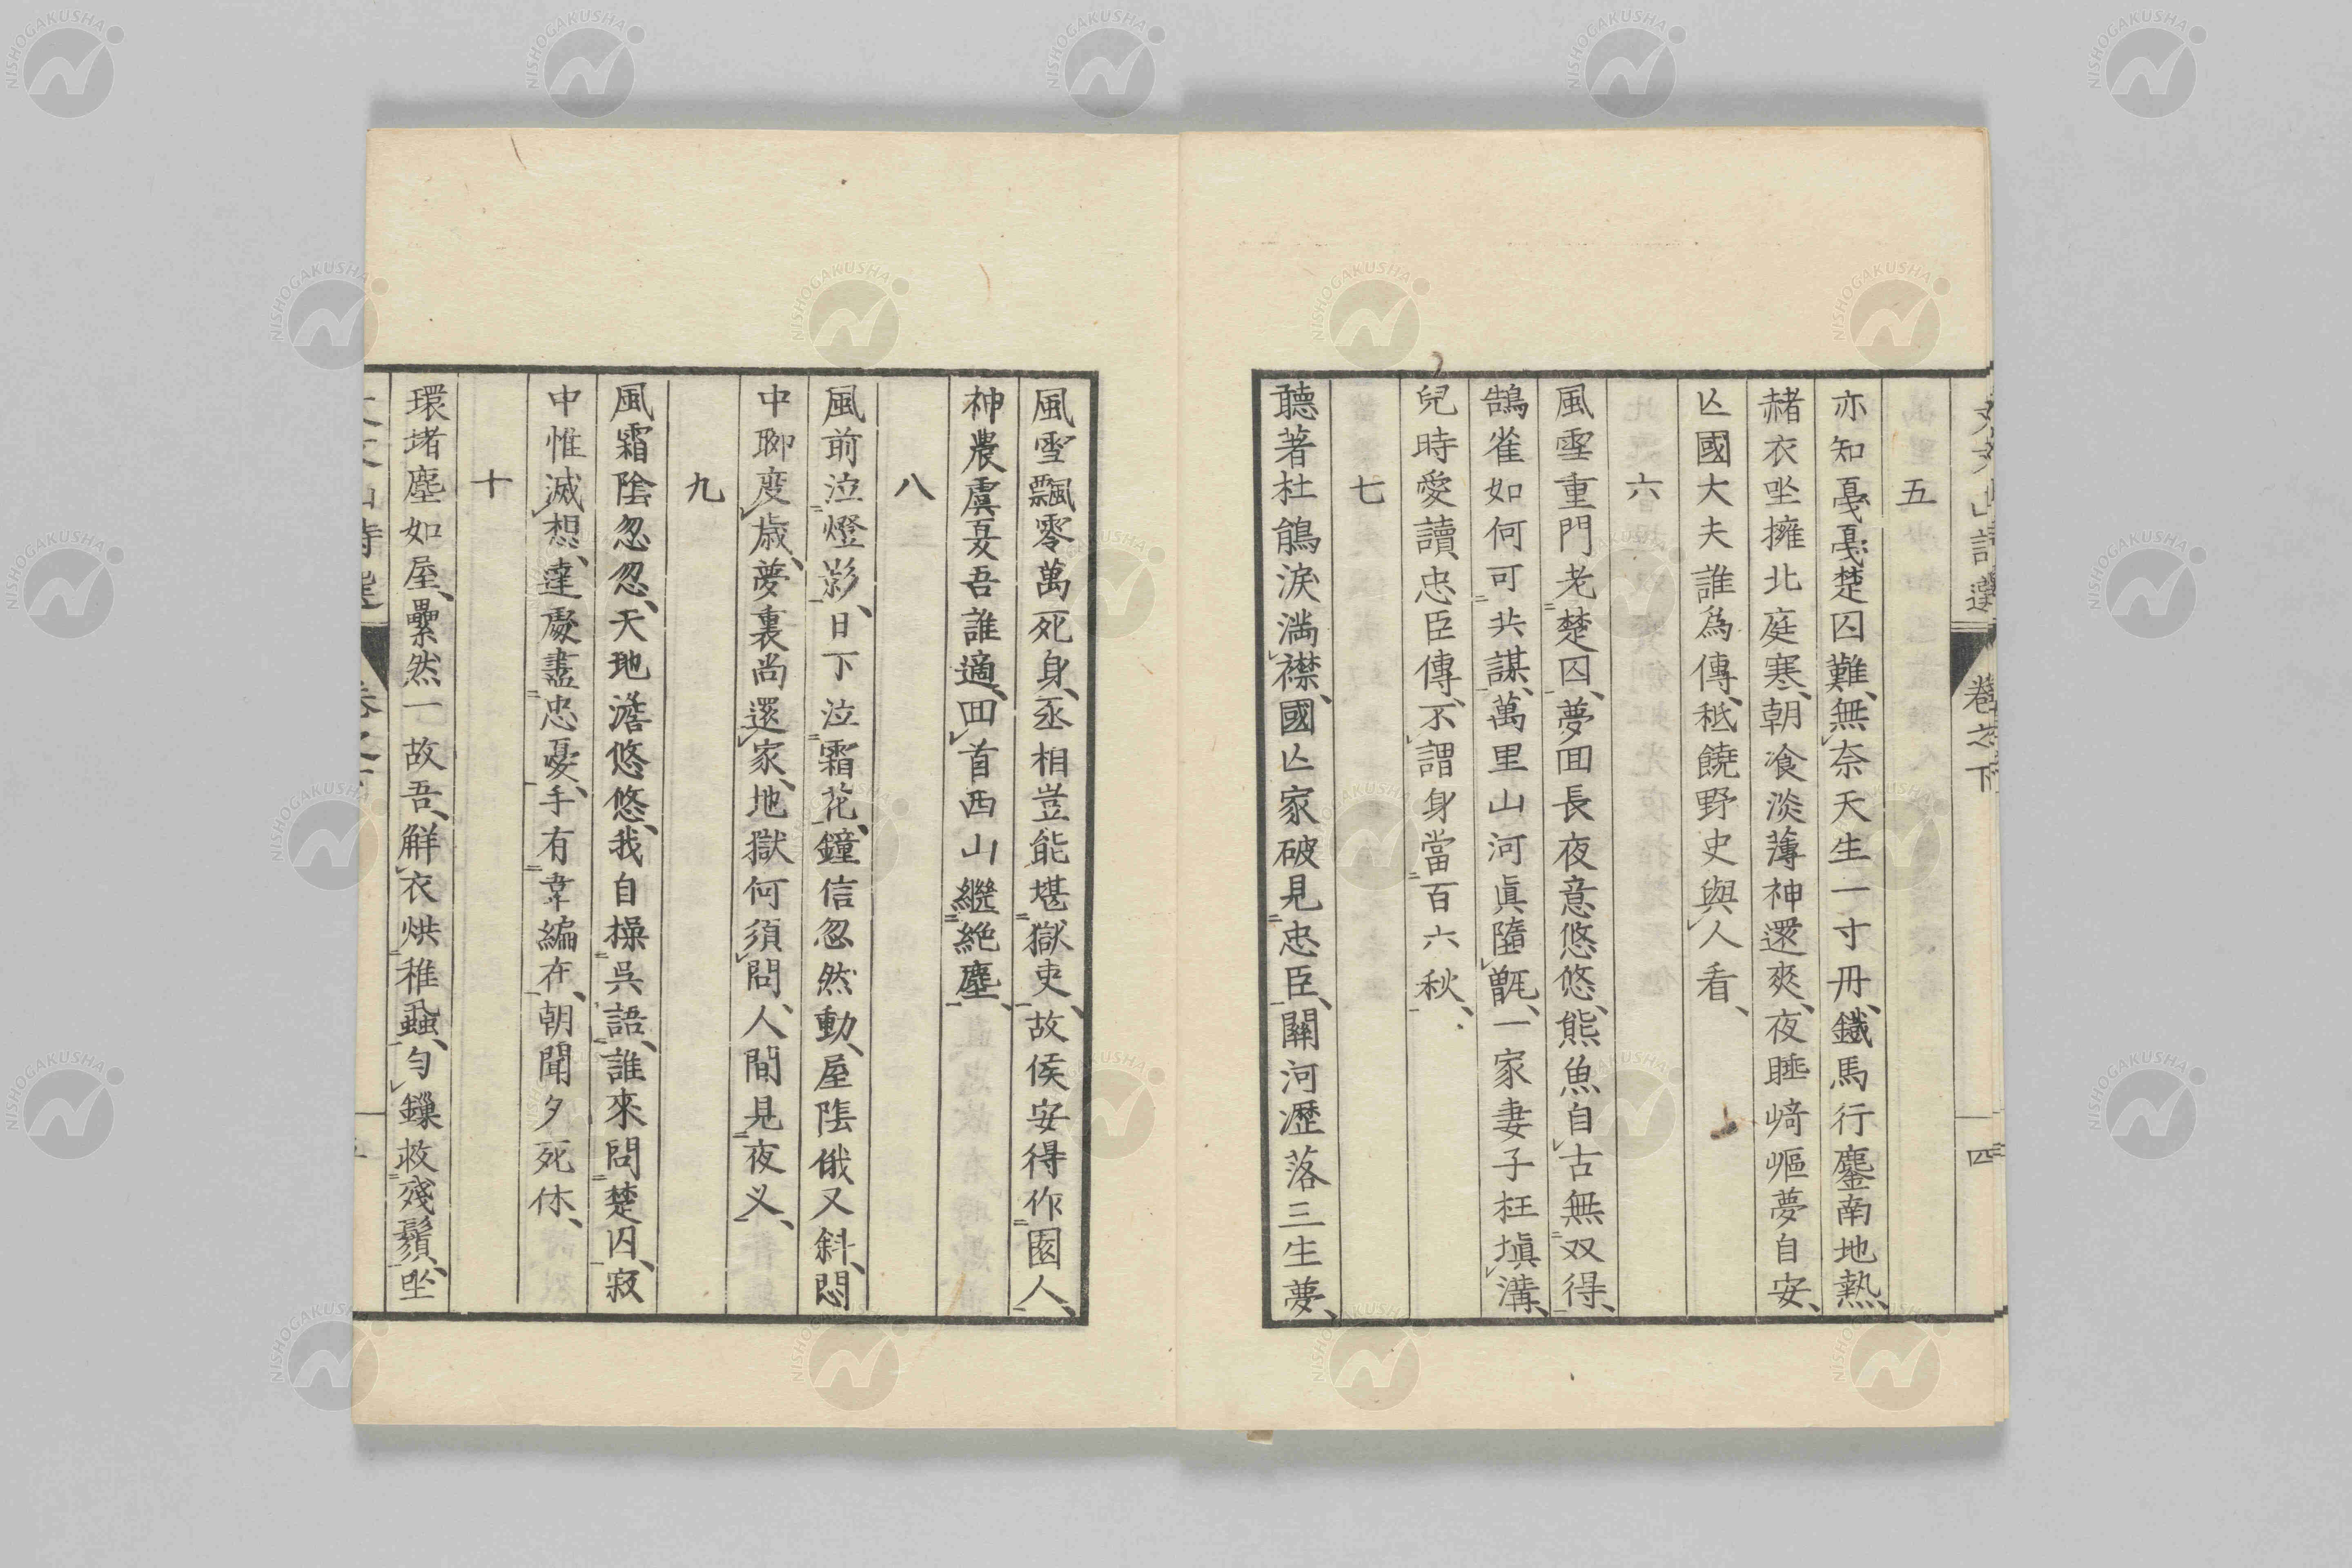 文文山詩選 卷之下 四
五
亦知戞戞楚囚難、無奈天生一寸丹、鐵馬行鏖南地熱、
赭衣坐擁北庭寒、朝飡淡薄神還爽、夜睡崎嶇夢自安、
亾國大夫誰爲傳、秪饒野史與人看、
六
風雪重門老楚囚、夢回長夜意悠悠、熊魚自古無双得、
鵠雀如何可共謀、萬里山河眞墮甑、一家妻子枉塡溝、
兒時愛讀忠臣傳、不謂身當百六秋、
七
聽著杜鵑淚滿襟、國亾家破見忠臣、關河瀝落三生夢、
風雪飄零萬死身、丞相豈能堪獄吏、故侯安得作園人、
神農虞夏吾誰適、回首西山繼絶塵、
八
風前泣燈影、日下泣霜花、鐘信忽然動、屋陰俄又斜、悶
中聊度歳、夢裏尚還家、地獄何須問、人間見夜叉、
九
風霜陰忽忽、天地澹悠悠、我自操呉語、誰來問楚囚、寂
中惟滅想、達處盡忠憂、手有韋編在、朝聞夕死休、
十
環堵塵如屋、纍然一故吾、解衣烘稚蝨、匀鑷救殘鬚、坐